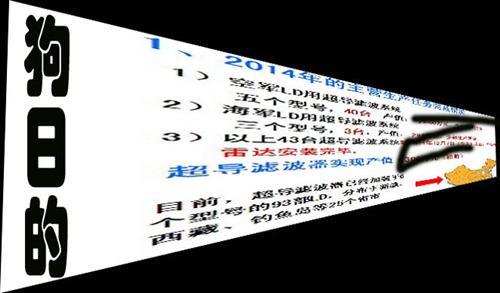 狗日的
1、2014年的主营生产任务完成情况
1）空军LD用超导滤波系统
五个型号，40台，产值：
2）海军LD用超导滤波系统
三个型号，3台，产值：
3）以上43台超导滤波系统
雷达安装完毕，
超导滤波器实现产值
目前，超导滤波器已经加装于6
个型号的93部LD，分布于新疆、
西藏、钓鱼岛等25个省市